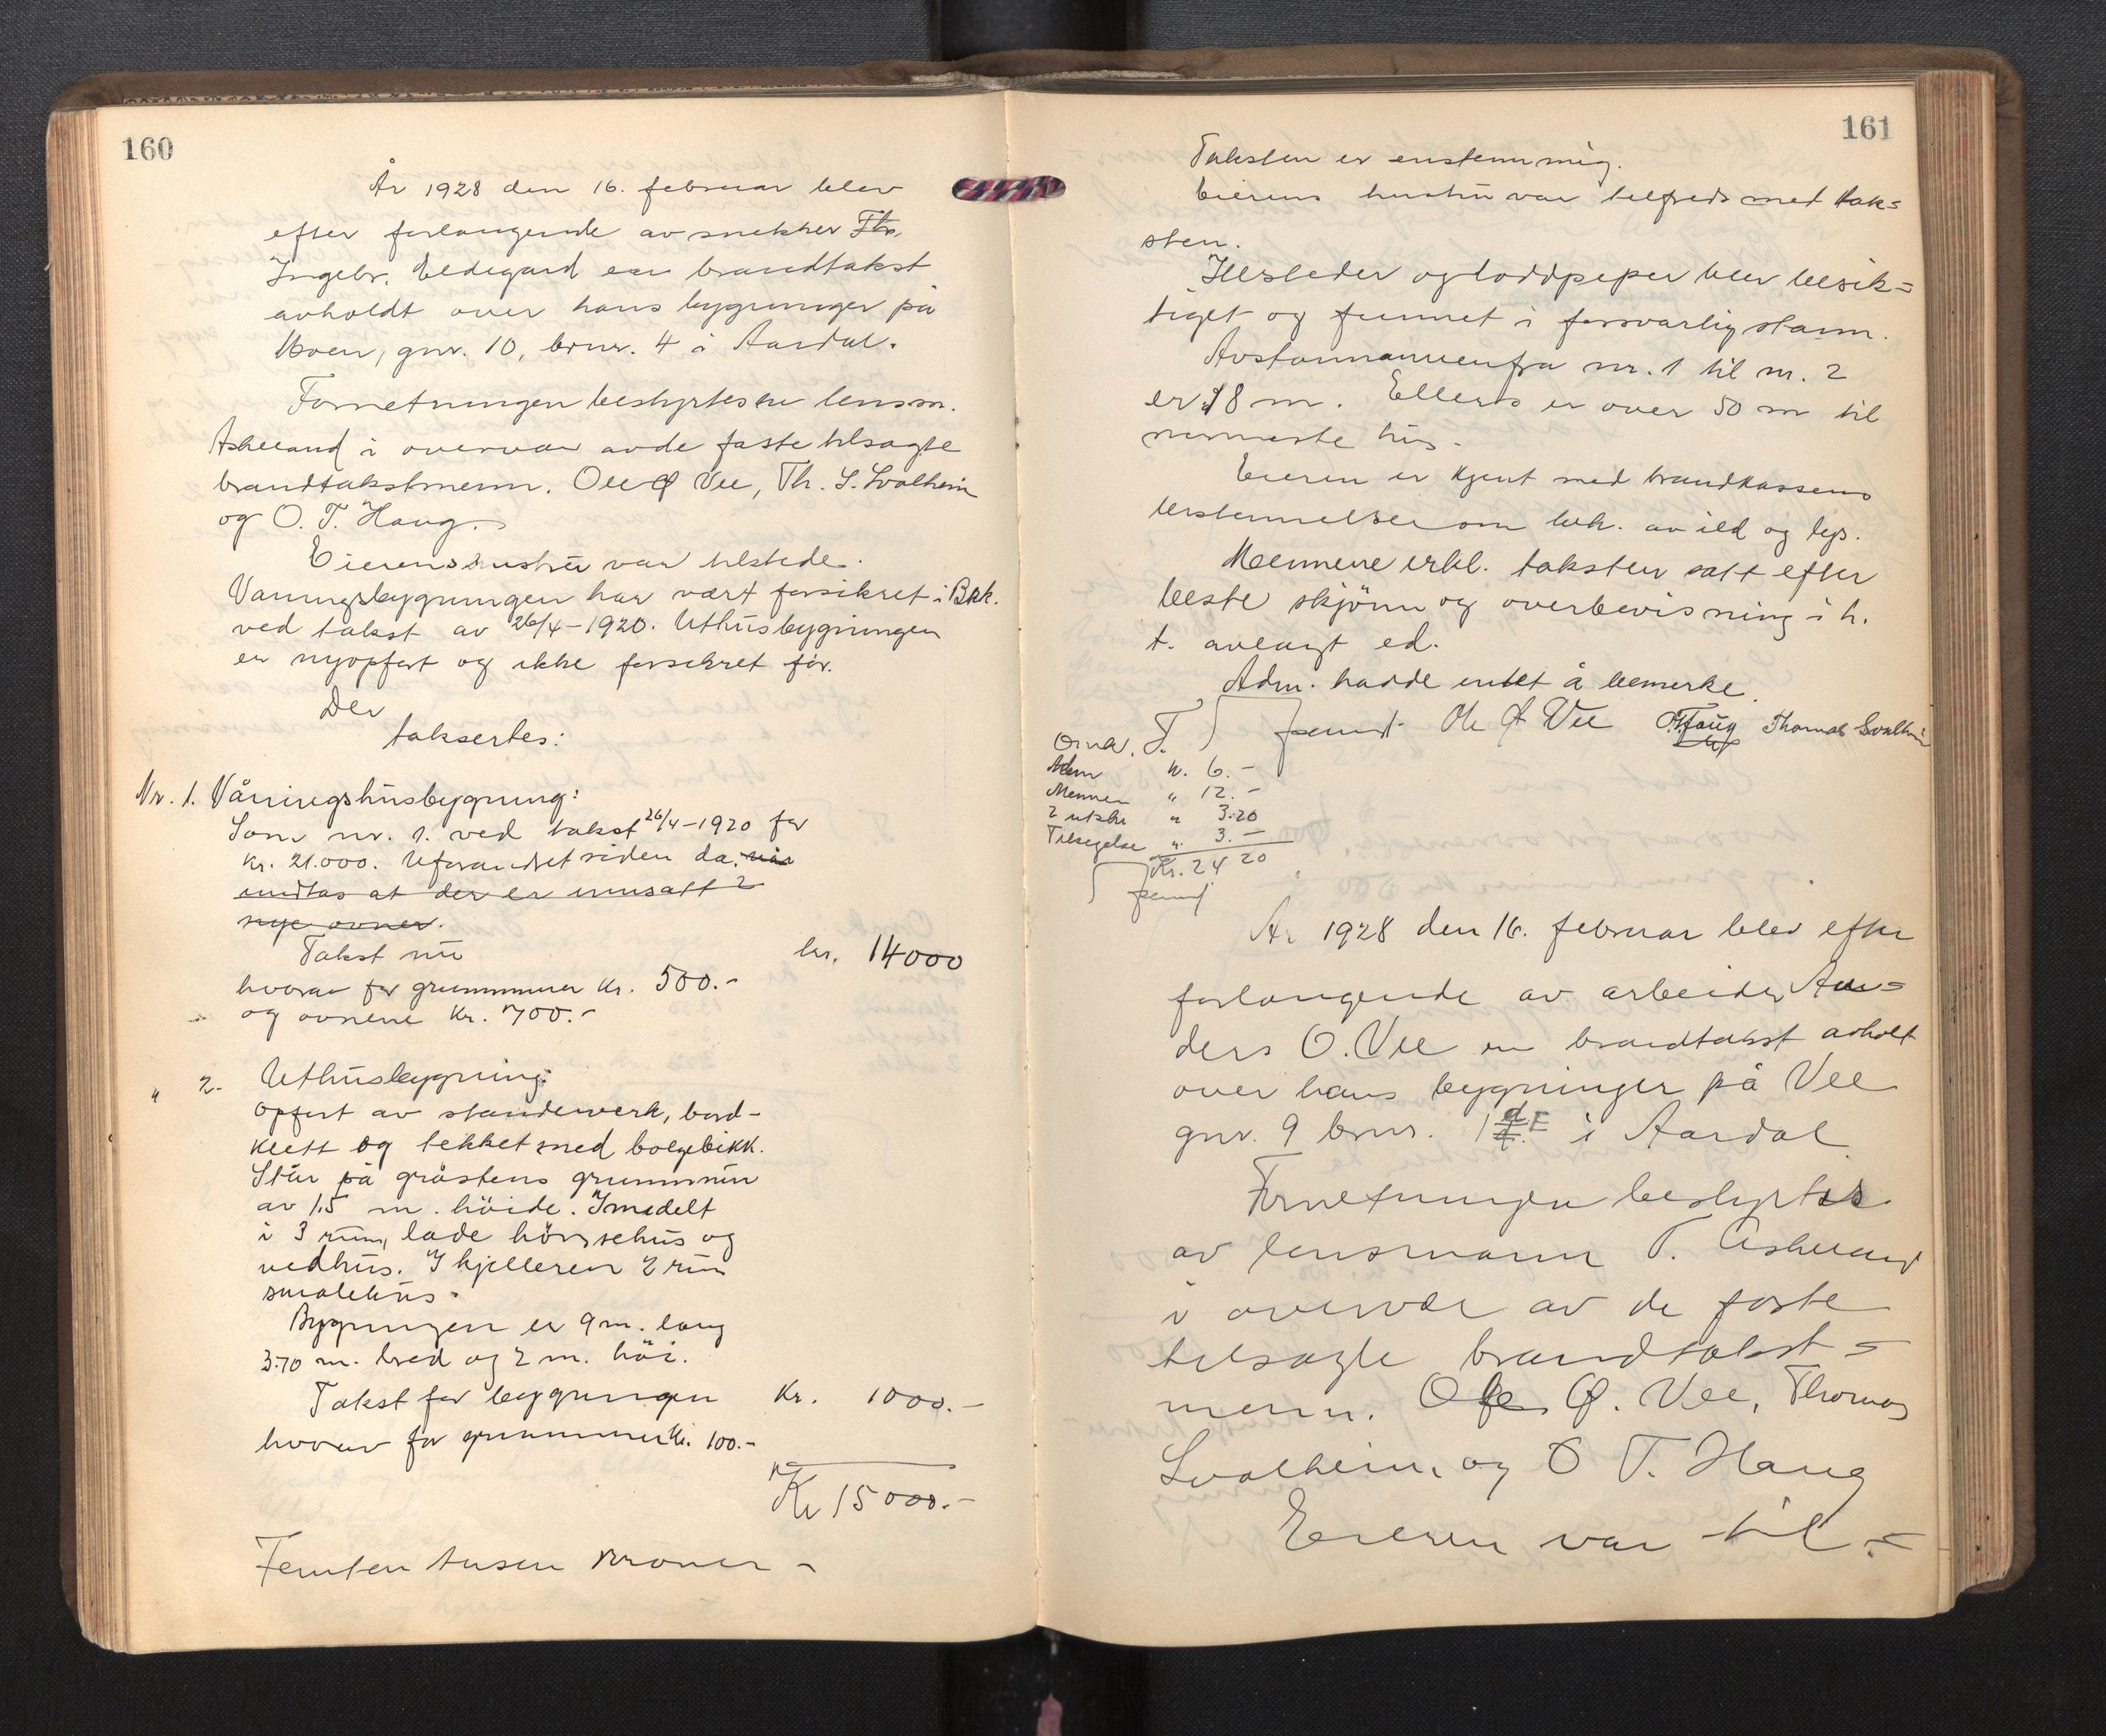 160
År 1928 den 16. februar blev
efter forlangende av snekker Th.
Ingebr. Eldegard en brandtakst
avholdt over hans bygninger på
Moen, gnr. 10, brnr. 4 i Aardal.
Forretningen bestyrtes av lensm.
Askeland i overvær av de faste tilsagte
brandtakstmenn. Ole Ø Vee, Th. S. Svalheim
og O. T. Haug.
Eierens hustru var tilstede.
Våningsbygningen har vært forsikret i Bkk.
ved takst av 26/4-1920. Uthusbygningen
er nyopført og ikke forsikret før.
Der
taksertes:
Nr. 1. Våningshusbygning:
Som nr. 1. ved takst 26/4-1920 for
kr. 21.000. Uforandret siden da, når
undtas at der er innsatt 2
nye ovner.
Takst nu kr. 14000
hvorav for grunnmuren kr. 500.-
og ovnene kr. 700.-
" 2. Uthusbygning:
opført av stenderverk, bord-
klett og tekket med bølgeblikk.
Står på gråstens grunnmur
av 1,5 m. høide. Inndelt
i 3 rum, lade hönsehus og
vedhus. I kjelleren 2 rum
smalehus.
Bygningen er 9 m. lang
3.70 m. bred og 2 m. höi.
Takst for bygningen Kr. 1000.-
hvorav for grunnmuren kr. 100.-
Kr 15000.-
Femten tusen kroner -
161
Taksten er enstemmig.
Eierens hustru var tilfreds med tak=
sten.
Ildsteder og loddpiper blev besik=
tiget og funnet i forsvarlig stann.
Avstannen fra nr. 1 til nr. 2
er 18 m. Ellers er over 50 m til
nærmeste hus.
Eieren er kjent med brandkassens
bestemmelser om beh. av ild og lys.
Mennene erkl. taksten satt efter
beste skjönn og overbevisning i h.
t. avlagt ed.
Adm. hadde intet å bemerke.
Ole Ø Vee O.T. Haug Thomas Svalheim
Adm kr. 6.-
Mennen " 12.-
2 utskr " 3.20
Tilsigelse " 3.-
Kr. 24 20
År 1928 den 16. februar blev efter
forlangende av arbeider An=
ders O. Vee en brandtakst avholt
over hans bygninger på Vee
gnr. 9 brnr. 1 d E i Aardal
Forretningen bestyrtes
av lensmann T. Askeland
i overvær av de faste
tilsagte brandtakst=
menn. Ole Ø. Vee, Thomas
Svalheim, og O T. Haug
Eieren var til=